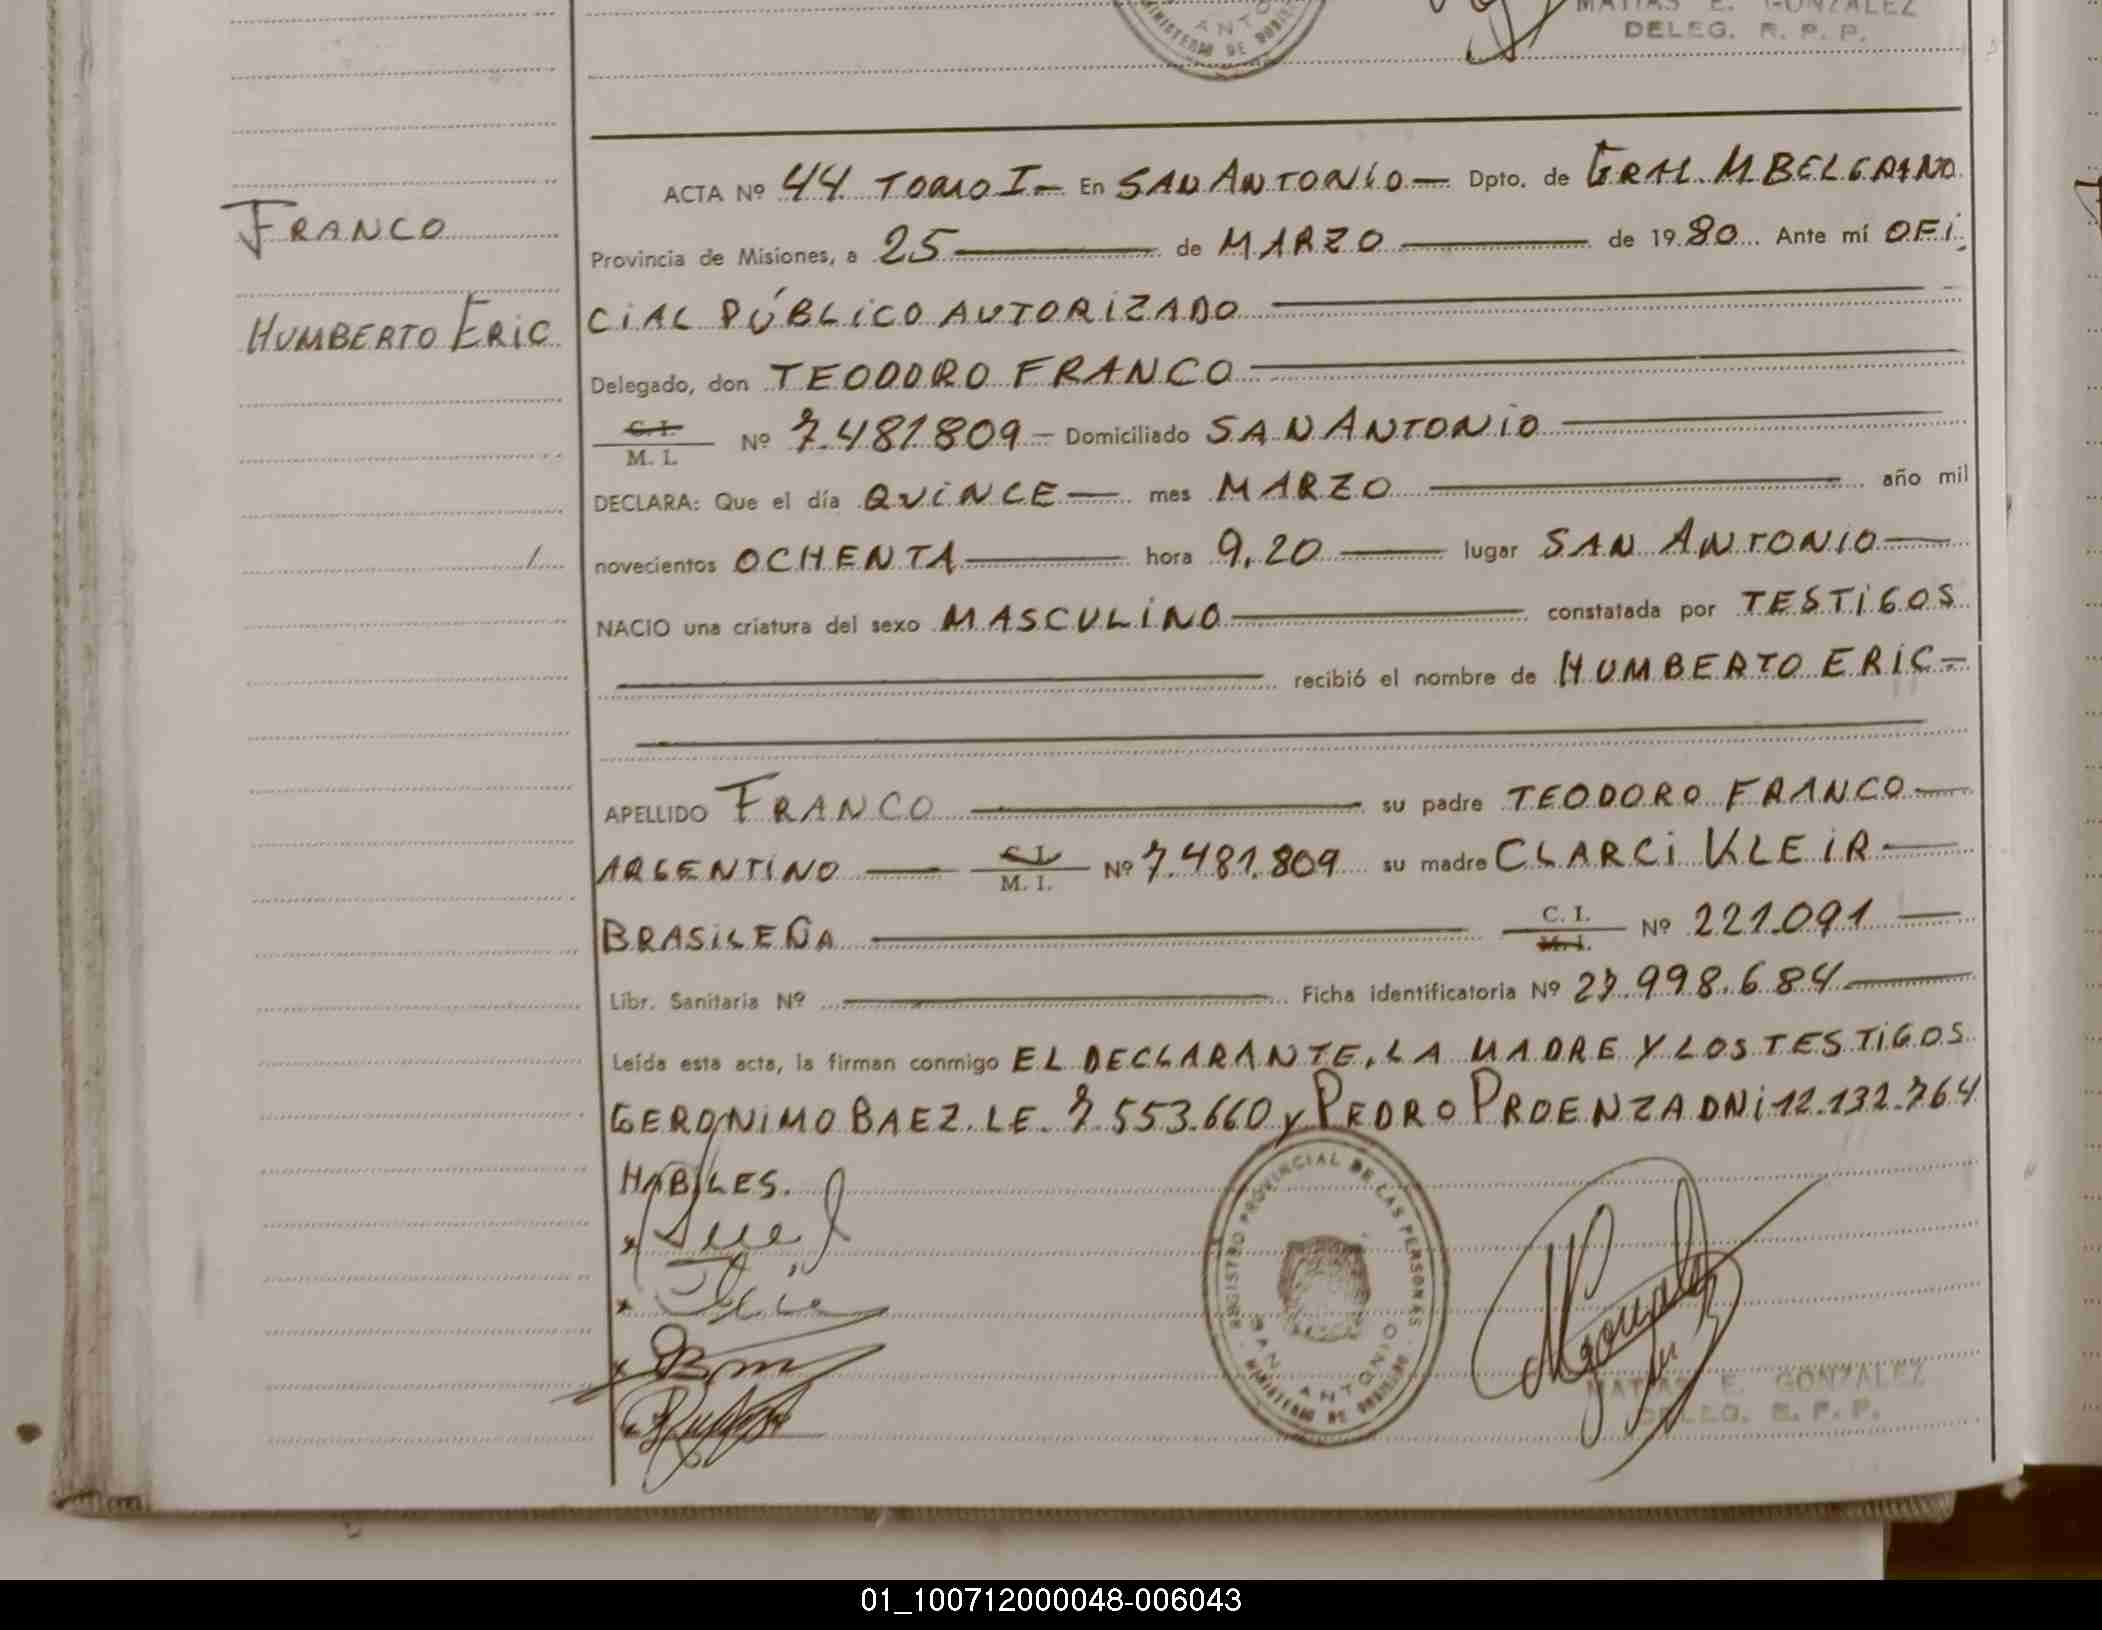 MATIAS E. GONZALEZ
DELEG. R. P. P.
ANTO
MINISTERIO DE GOBIERNO
FRANCO
HUMBERTO ERIC
ACTA Nº 44 TOMO I - En SAN ANTONIO - Dpto. de GRAL. M BELGRANO
Provincia de Misiones, a 25 de MARZO de 1980 Ante mí OFI
CIAL PÚBLICO AUTORIZADO
Delegado, don TEODORO FRANCO
C. I. / M. I. Nº 7.481809 - Domiciliado SAN ANTONIO
DECLARA: Que el día QUINCE - mes MARZO año mil
novecientos OCHENTA hora 9,20 lugar SAN ANTONIO
NACIO una criatura del sexo MASCULINO constatada por TESTIGOS
recibió el nombre de HUMBERTO ERIC -
APELLIDO FRANCO su padre TEODORO FRANCO
ARGENTINO C. I. / M. I. Nº 7.481.809 su madre CLARCI KLEIR
BRASILEÑA C. I. / M. I. Nº 221.091
Libr. Sanitaria Nº Ficha identificatoria Nº 27.998.684
Leída esta acta, la firman conmigo EL DECLARANTE, LA MADRE Y LOS TESTIGOS
GERONIMO BAEZ. L E. 7.553.660 y PEDRO PROENZA DNI 12.132.764
HABILES.
REGISTRO PROVINCIAL DE LAS PERSONAS
SAN ANTONIO
MINISTERIO DE GOBIERNO
MATIAS E. GONZALEZ
DELEG. R. P. P.
01_100712000048-006043